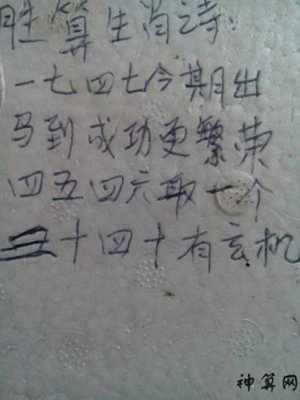 胜算生肖诗:
一七四七今期出
马到成功更繁荣
四五四六取一个
三十四十有玄机
神算网